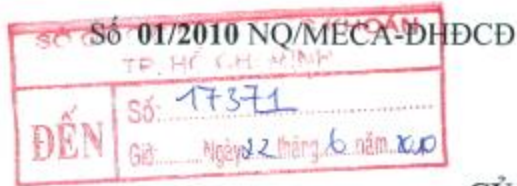 Số 01/2010 NQ/MECA-ĐHĐCĐ
SỞ KHOÁN
TP. HỒ CHÍ MINH
ĐẾN
Số: 17371
Giờ: Ngày 22 tháng 6 năm 2010